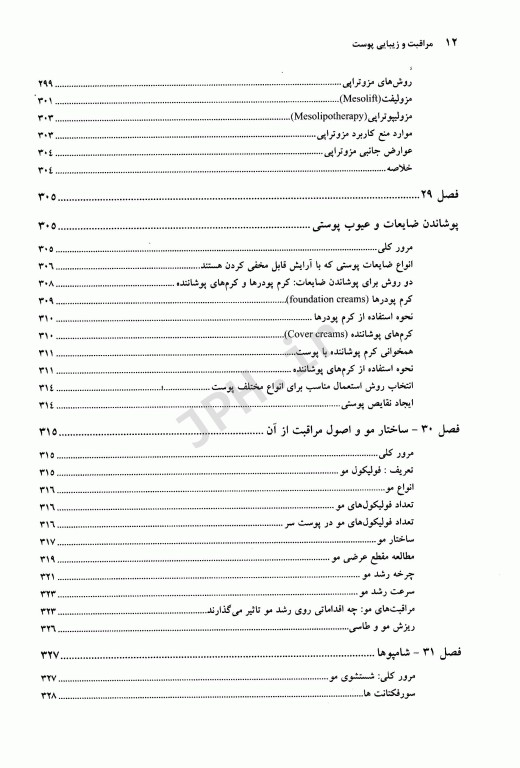 ۱۲ مراقبت و زیبایی پوست
روش‌های مزوتراپی ۲۹۹
مزولیفت(Mesolift) ۳۰۱
مزولیپوتراپی(Mesolipotherapy) ۳۰۳
موارد منع کاربرد مزوتراپی ۳۰۳
عوارض جانبی مزوتراپی ۳۰۴
خلاصه ۳۰۴
فصل ۲۹ ۳۰۵
پوشاندن ضایعات و عیوب پوستی ۳۰۵
مرور کلی ۳۰۵
انواع ضایعات پوستی که با آرایش قابل مخفی کردن هستند ۳۰۶
دو روش برای پوشاندن ضایعات: کرم پودرها و کرم‌های پوشاننده ۳۰۸
کرم پودرها (foundation creams) ۳۰۹
نحوه استفاده از کرم پودرها ۳۱۰
کرم‌های پوشاننده (Cover creams) ۳۱۰
همخوانی کرم پوشاننده با پوست ۳۱۱
نحوه استفاده از کرم‌های پوشاننده ۳۱۱
انتخاب روش استعمال مناسب برای انواع مختلف پوست ۳۱۴
ایجاد نقایص پوستی ۳۱۴
فصل ۳۰ - ساختار مو و اصول مراقبت از آن ۳۱۵
مرور کلی ۳۱۵
تعریف : فولیکول مو ۳۱۵
انواع مو ۳۱۶
تعداد فولیکول‌های مو ۳۱۶
تعداد فولیکول‌های مو در پوست سر ۳۱۶
ساختار مو ۳۱۷
مطالعه مقطع عرضی مو ۳۱۹
چرخه رشد مو ۳۲۱
سرعت رشد مو ۳۲۳
مراقبت‌های مو: چه اقداماتی روی رشد مو تاثیر می‌گذارند ۳۲۳
ریزش مو و طاسی ۳۲۶
فصل ۳۱ - شامپوها ۳۲۷
مرور کلی: شستشوی مو ۳۲۷
سورفکتانت ها ۳۲۸
JPH.ir